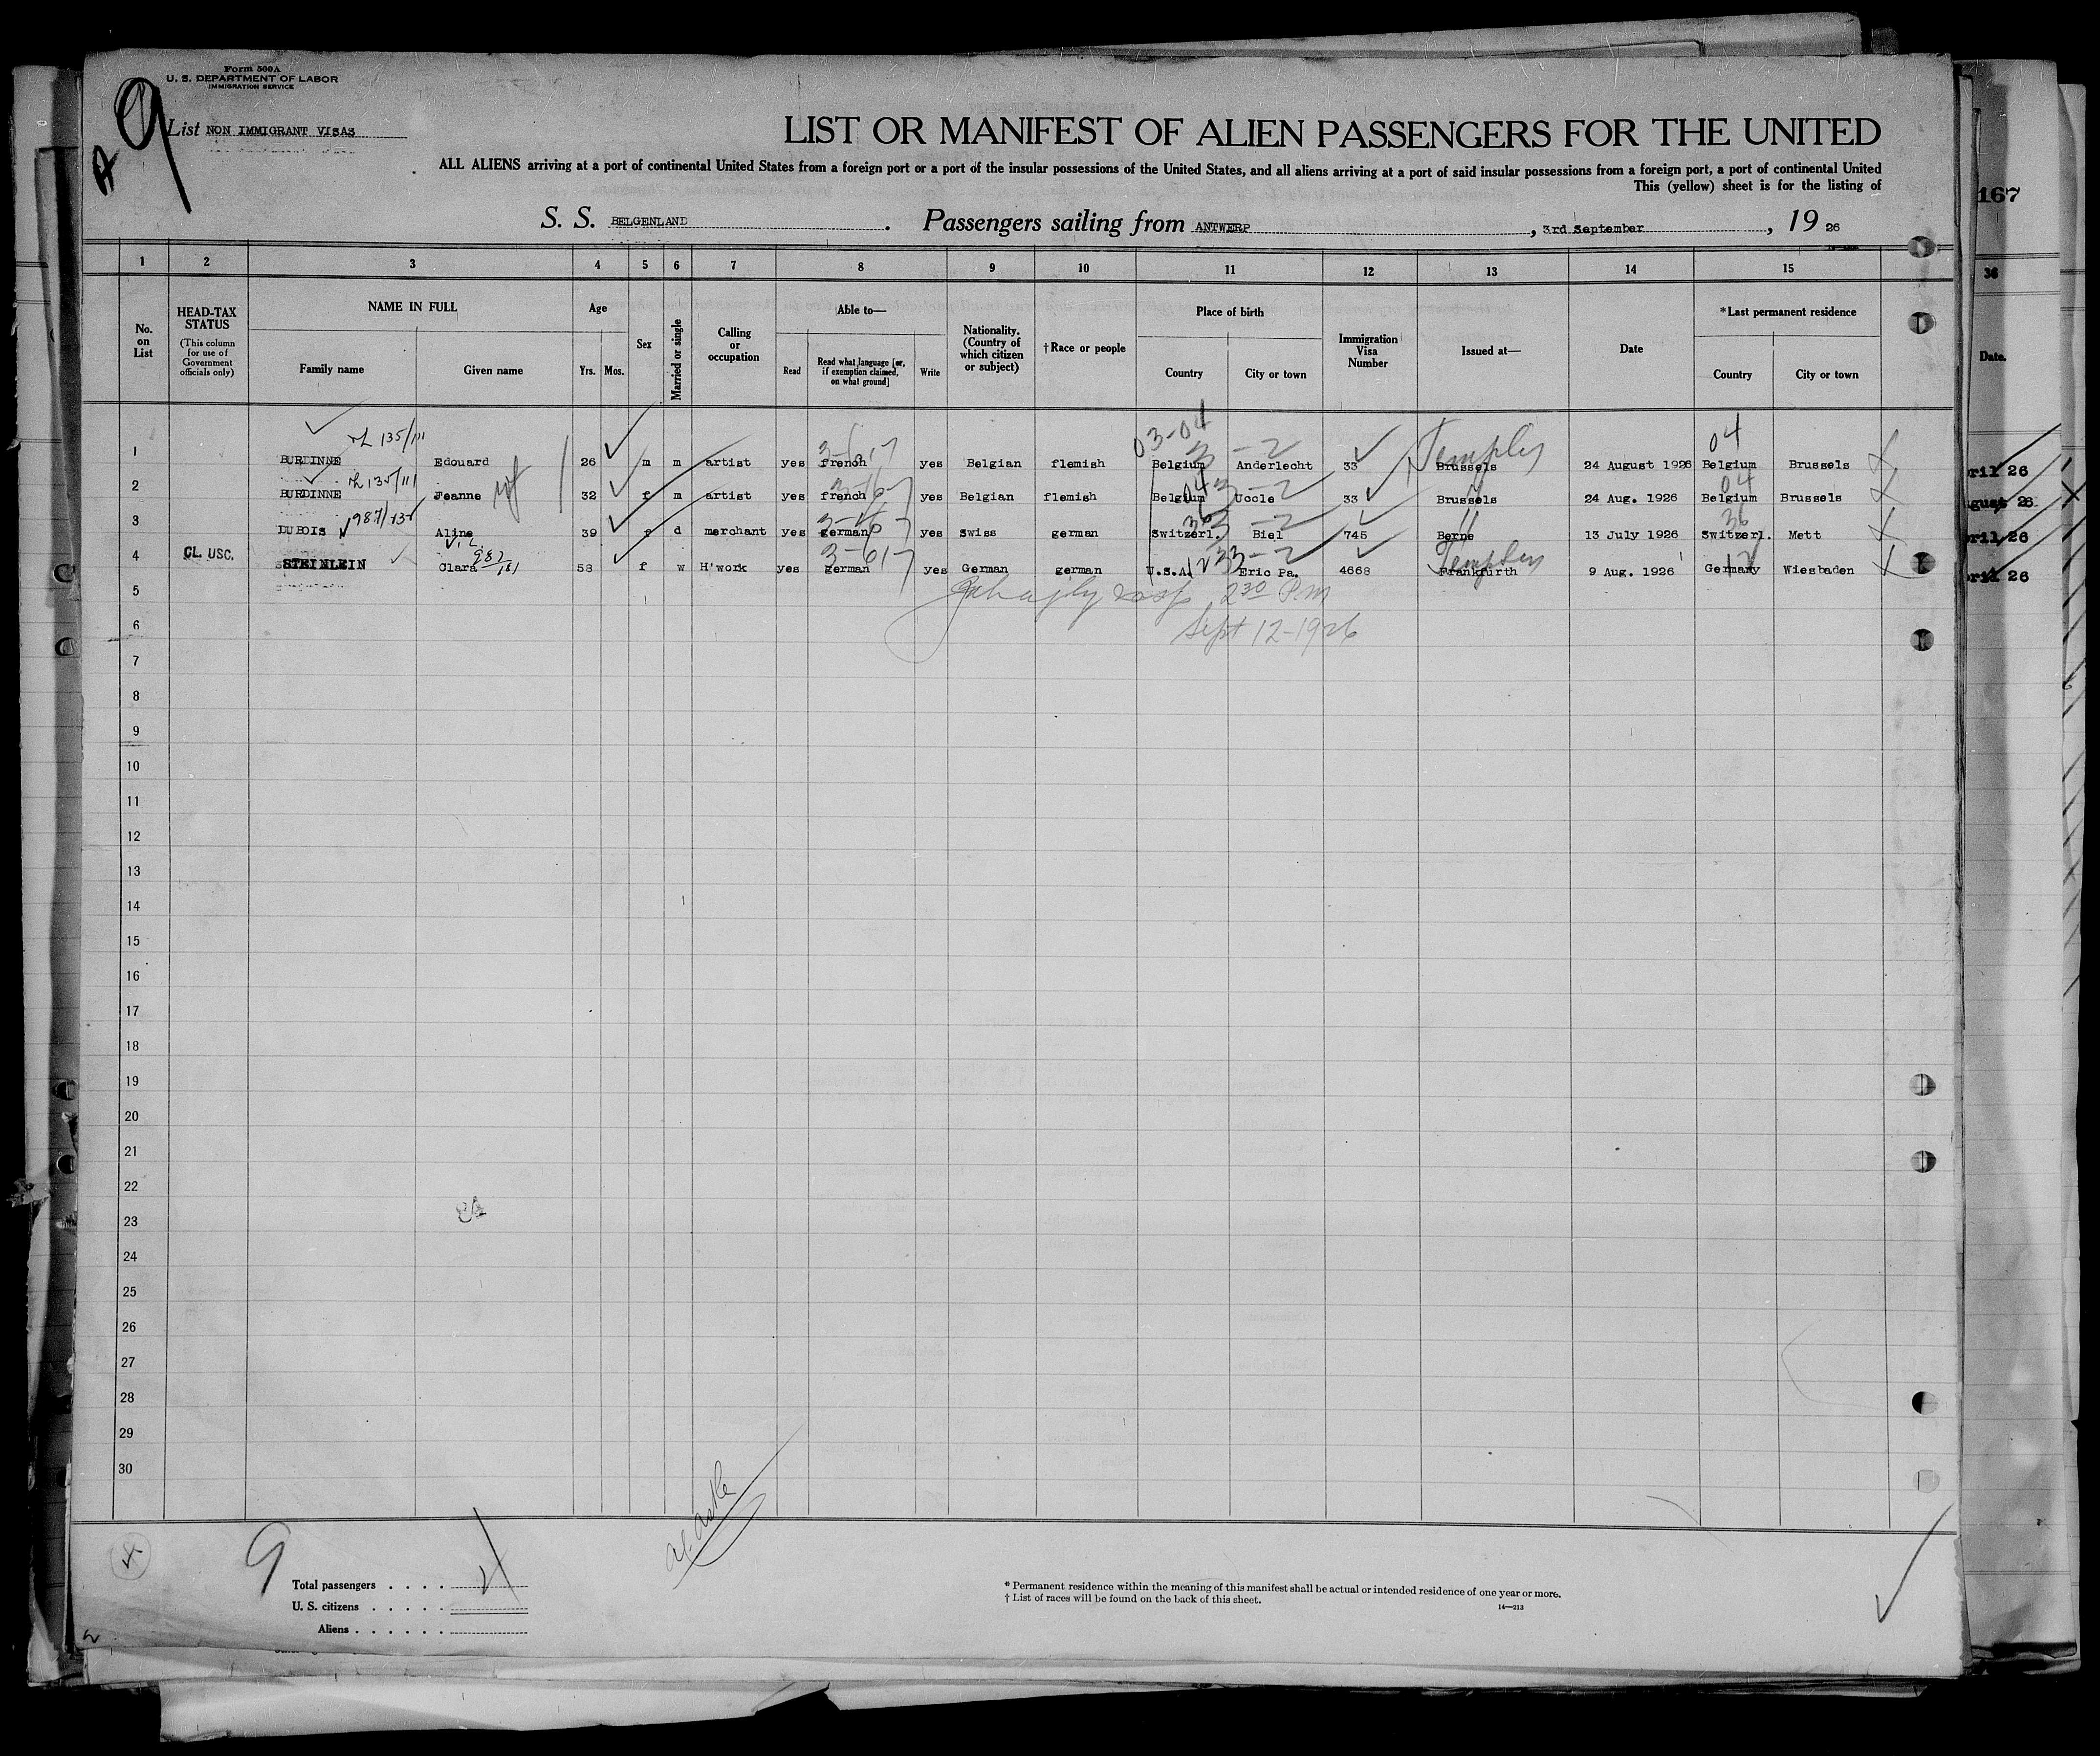 Form 500A
U. S. DEPARTMENT OF LABOR
IMMIGRATION SERVICE
9
A
List NON IMMIGRANT VISAS
LIST OR MANIFEST OF ALIEN PASSENGERS FOR THE UNITED
ALL ALIENS arriving at a port of continental United States from a foreign port or a port of the insular possessions of the United States, and all aliens arriving at a port of said insular possessions from a foreign port, a port of continental United
This (yellow) sheet is for the listing of
167
S. S. BELGENLAND. Passengers sailing from ANTWERP, 3rd September, 19 26
1 2 3 4 5 6 7 8 9 10 11 12 13 14 15 36
No. on List
HEAD-TAX STATUS (This column for use of Government officials only)
NAME IN FULL
Family name Given name
Age
Yrs. Mos.
Sex
Married or single
Calling or occupation
Able to—
Read Read what language [or, if exemption claimed, on what ground] Write
Nationality. (Country of which citizen or subject)
†Race or people
Place of birth
Country City or town
Immigration Visa Number
Issued at—
Date
*Last permanent residence
Country City or town
Date.
135/111 03-04 3-2 04
1 BURDINNE Edouard 26 m m artist yes french yes Belgian flemish Belgium Anderlecht 33 Brussels 24 August 1926 Belgium Brussels
135/111 04 04
2 BURDINNE Jeanne 32 f m artist yes french yes Belgian flemish Belgium Uccle 33 Brussels 24 Aug. 1926 Belgium Brussels
987/135 36
3 DUBOIS Aline 39 f d merchant yes german yes Swiss german Switzerl. Biel 745 Berne 13 July 1926 Switzerl. Mett
4 CL. USC. STEINLEIN Clara 58 f w H'work yes german yes German german U.S.A. Eric Pa. 4668 Frankfurth 9 Aug. 1926 Germany Wiesbaden
5 2 30 Pm
6 Sept 12-1926
7
8
9
10
11
12
13
14
15
16
17
18
19
20
21
22
23
24
25
26
27
28
29
30
9
Total passengers
U. S. citizens
Aliens
* Permanent residence within the meaning of this manifest shall be actual or intended residence of one year or more.
† List of races will be found on the back of this sheet.
14—213